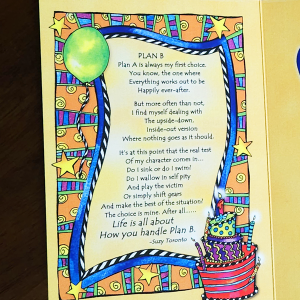 PLAN B
Plan A is always my first choice.
You know, the one where
Everything works out to be
Happily ever-after.
But more often than not,
I find myself dealing with
The upside-down,
Inside-out version
Where nothing goes as it should.
It's at this point that the real test
Of my character comes in...
Do I sink or do I swim?
Do I wallow in self pity
And play the victim
Or simply shift gears
And make the best of the situation?
The choice is mine. After all......
Life is all about
How you handle Plan B.
-Suzy Toronto